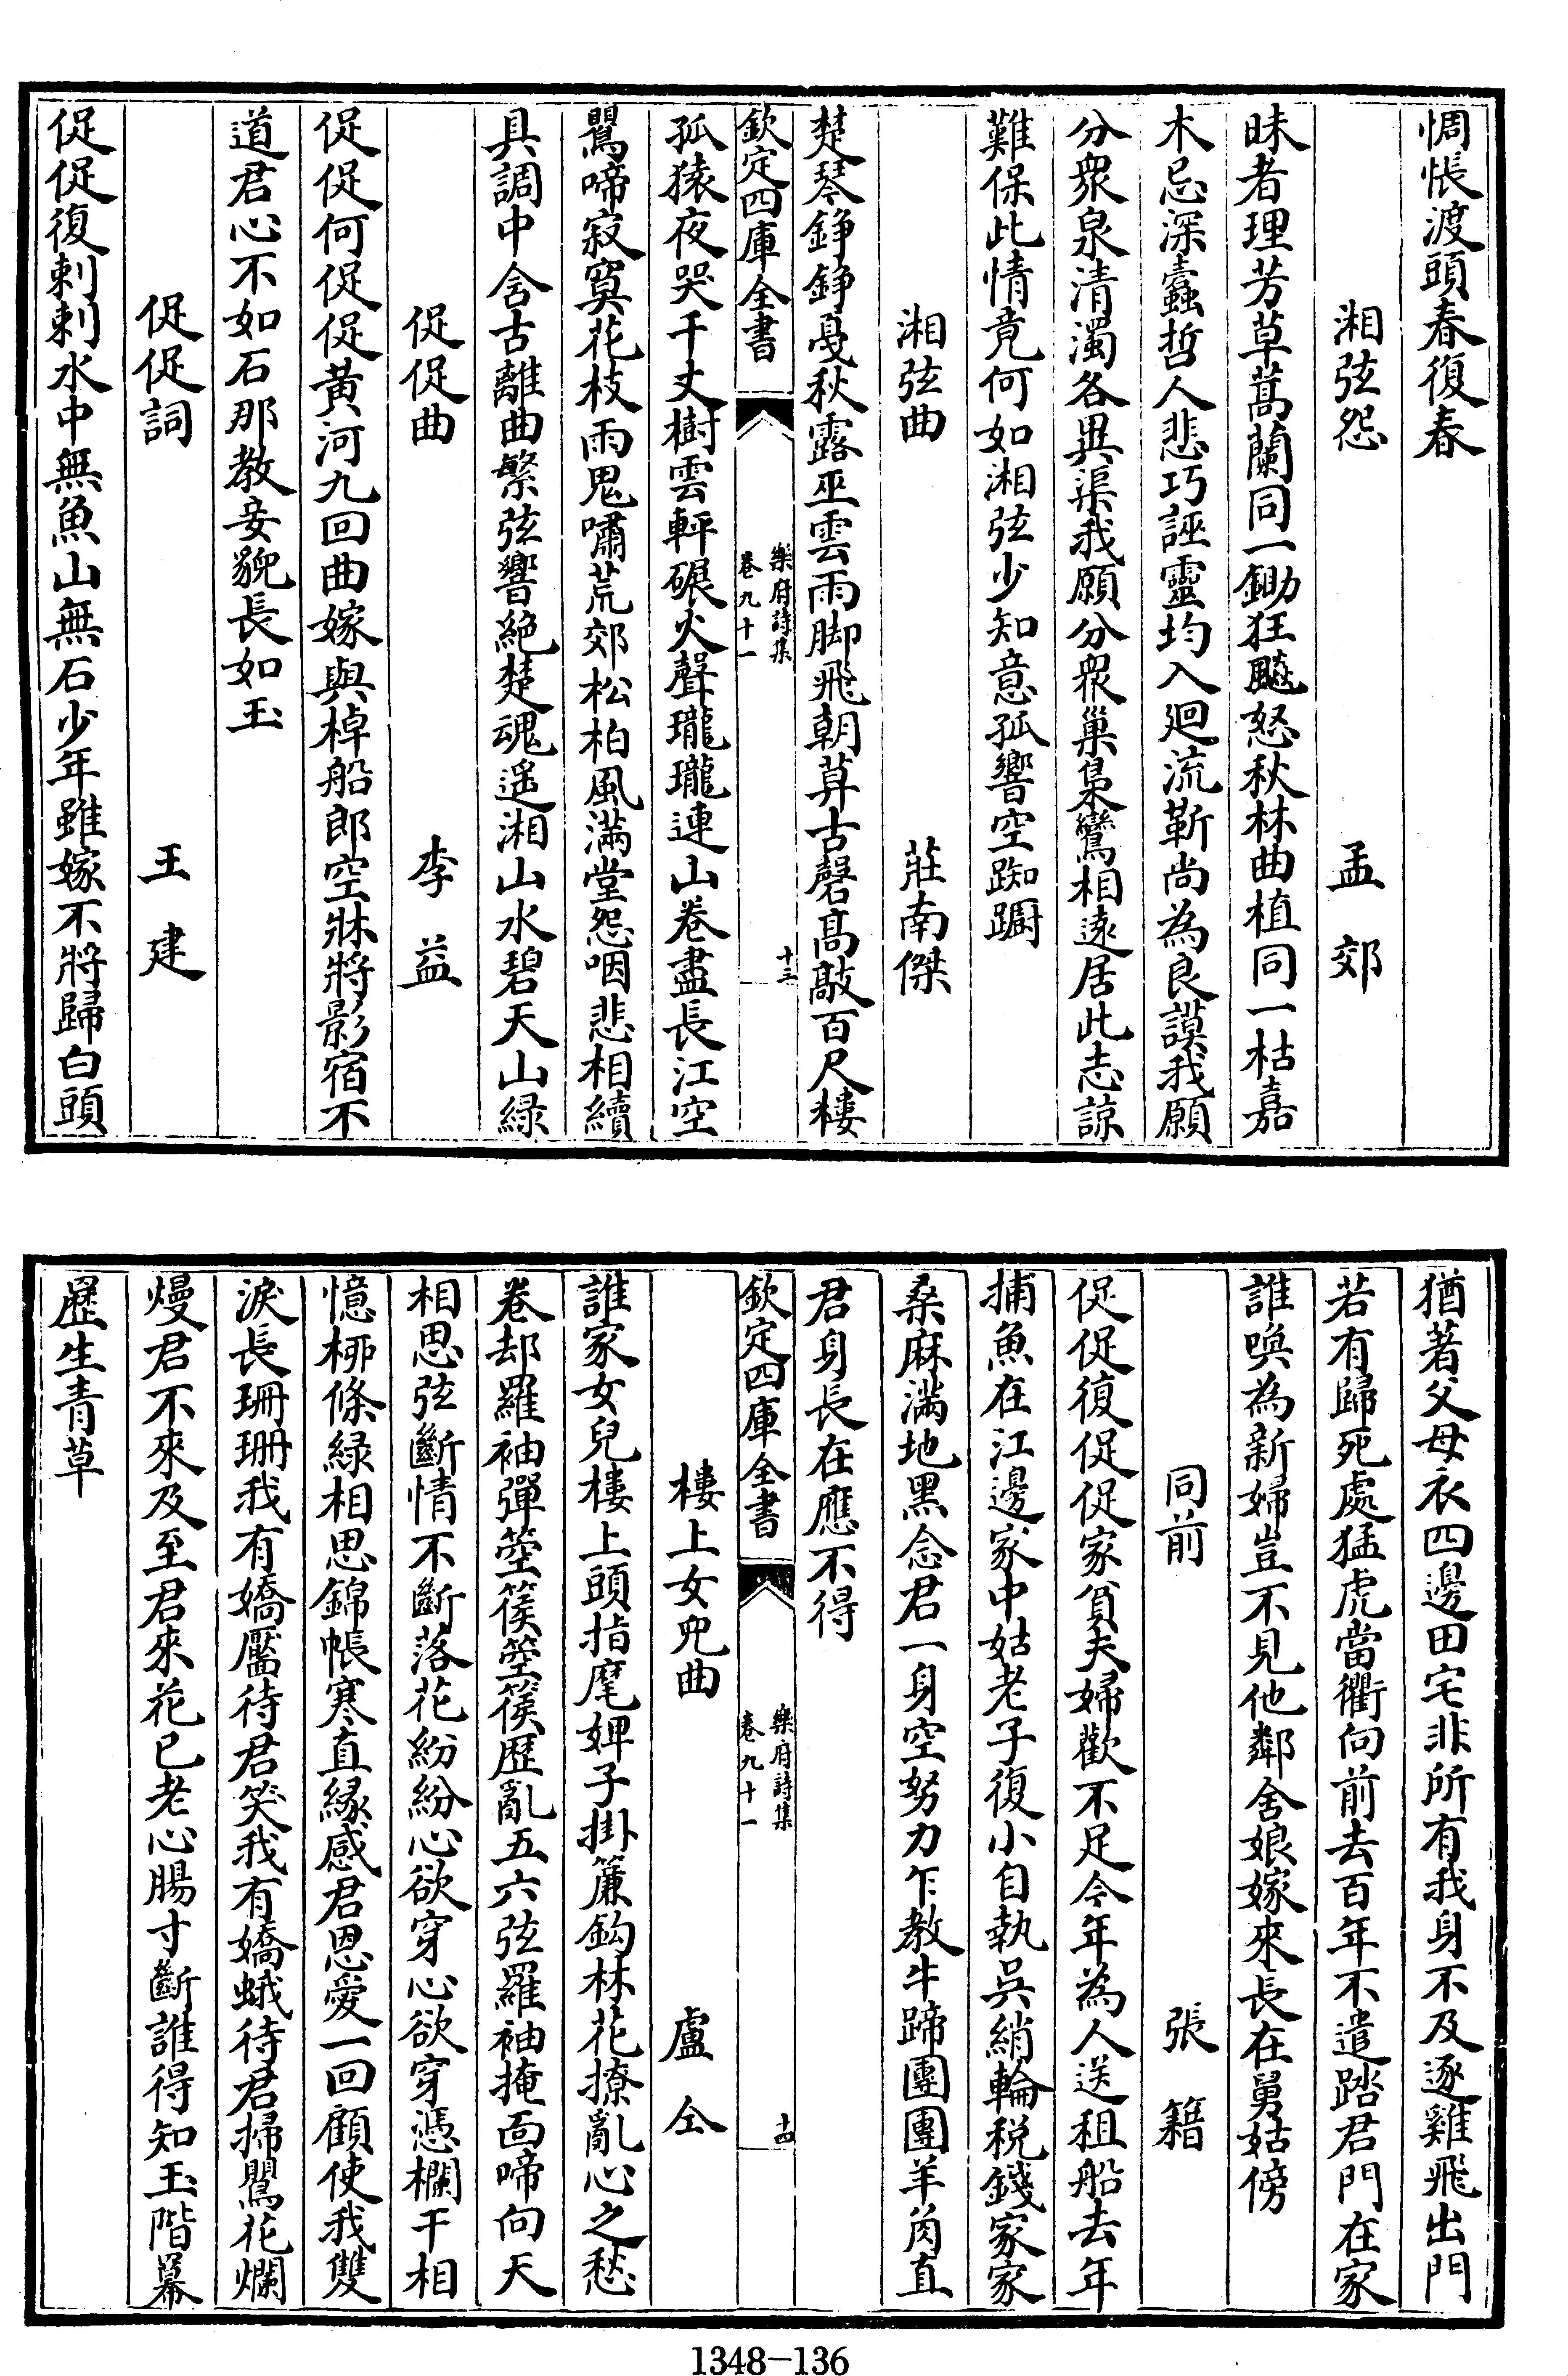 惆悵渡頭春復春
湘弦怨　孟郊
昧者理芳草蒿蘭同一鋤狂飈怒秋林曲植同一枯嘉
木忌深蠹哲人悲巧誣靈均入廻流靳尚為良謨我願
分衆泉清濁各異渠我願分衆巢梟鸞相遠居此志諒
難保此情竟何如湘弦少知意孤響空踟躕
湘弦曲　莊南傑
楚琴錚錚戛秋露巫雲雨脚飛朝暮古磬髙敲百尺樓
欽定四庫全書　樂府詩集卷九十一　十三
孤猿夜哭千丈樹雲軿碾火聲瓏瓏連山卷盡長江空
鸎啼寂寞花枝雨鬼嘯荒郊松柏風滿堂怨咽悲相續
具調中含古離曲繁弦響絕楚魂遥湘山水碧天山緑
促促曲　李益
促促何促促黄河九回曲嫁與棹船郎空牀將影宿不
道君心不如石那教妾貌長如玉
促促詞　王建
促促復刺刺水中無魚山無石少年雖嫁不將歸白頭
猶著父母衣四邊田宅非所有我身不及逐雞飛出門
若有歸死處猛虎當衢向前去百年不遣踏君門在家
誰喚為新婦豈不見他鄰舍娘嫁來長在舅姑傍
同前　張籍
促促復促促家貧夫婦歡不足今年為人送租船去年
捕魚在江邊家中姑老子復小自執吳綃輪税錢家家
桑麻滿地黑念君一身空努力乍教牛蹄團團羊角直
君身長在應不得
欽定四庫全書　樂府詩集卷九十一　十四
樓上女兒曲　盧仝
誰家女兒樓上頭指麾婢子掛簾鈎林花撩亂心之愁
卷却羅袖彈箜篌箜篌歷亂五六弦羅袖掩面啼向天
相思弦斷情不斷落花紛紛心欲穿心欲穿憑欄干相
憶栁條緑相思錦帳寒直緣感君恩愛一回顧使我雙
淚長珊珊我有嬌靨待君笑我有嬌蛾待君掃鸎花爛
熳君不來及至君來花已老心腸寸斷誰得知玉階冪
歷生青草
1348-136